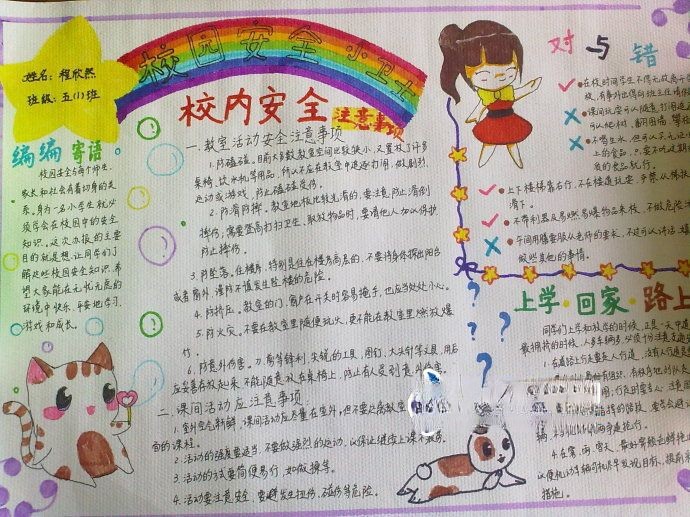 姓名：程欣然
班级：五(1)班
校园安全小卫士
校内安全
注意事项
编编寄语
校园安全与每个师生、
家长和社会有着切身的关
系。身为一名小学生就必
须学会在校园中的安全
知识。这次办报的主要
目的就是想让同学们了
解这些校园安全知识，希
望大家能在无忧无虑的
环境中快乐、平安地学习、
游戏和成长。
一.教室活动安全注意事项
1.防磕碰。目前大多数教室空间比较狭小，又置放了许多
桌椅、饮水机等用品，所以不应在教室中追逐打闹，做剧烈
运动或游戏，防止磕碰受伤。
2.防滑防摔。教室地板比较光滑的，要注意防止滑倒
摔伤；需要登高打扫卫生、取放物品时，要请他人加以保护
防止摔伤。
3.防坠落。住楼房，特别是住在楼房高层的，不要将身体探出阳台
或者窗外，谨防不慎发生坠楼的危险。
4.防挤压。教室的门、窗户在开关时容易掩手，也应当处处小心。
5.防火灾。不要在教室里随便玩火，更不能在教室里燃放爆
竹。
6.防意外伤害。刀、剪等锋利、尖锐的工具，图钉、大头针等文具，用后
应妥善存放起来，不能随意放在桌椅上，防止有人受到意外伤害。
二.课间活动应注意事项
1.室外空气新鲜，课间活动应尽量在室外，但不要远离教室
面的课程。
2.活动的强度要适当，不要做剧烈的运动，以保证继续上课不疲劳
3.活动的方式要简便易行，如做操等。
4.活动要注意安全，要避免发生扭伤、碰伤等危险。
对与错
在校时间学生不得无故离开
校，有事外出得向班主任请假
课间玩耍可以随意打闹追
可以爬树、翻围墙、攀
不喝生水，
上的食品，不要吃过期
质的食品就行。
上下楼梯靠右行，不在楼道玩耍、
滑下。
不带利器及易燃易爆物品来校，不做危险
午间用膳要服从老师的要求，不过可以讲话
做些其他的事情。
上学·回家·路上
同学们上学和放学的时候，正是一天中
最拥挤的时候，人多车辆多，必须十分注意交通安
1.在道路上行走要走人行道，没有人行道
4.在雾、雨、雪天，最好穿颜色鲜艳
以便机动车辆司机尽早发现目标，提前采
措施。